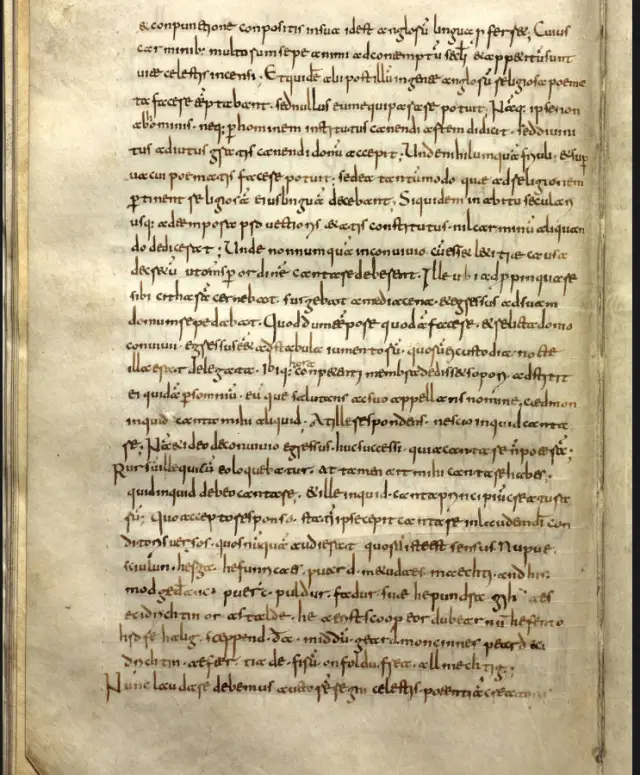 & conpunctione conpositis in sua id est anglosū lingua pferr&; Cuius
carminib; multorum sepe animi ad contemptū secli & app&itū sunt
uitae celestis incensi; Et quidē alii post illū in gente anglorū religiosa poema
ta facere tēptabant. sed nullus eum equiparare potuit; Nāq; ipse non
ab hominib. neq; p hominem institutus canendi artem didicit. sed diuini
tus adiutus gratis canendi donū accepit; Unde nihil umquā friuoli. & sup
uacui poematis facere potuit; sed ea tantūmodo quae ad religionem
pertinent religiosā eius linguā decebant; Siquidem in abitu seculari
usq; ad tempora pvectioris &atis constitutus. nil carminū aliquan
do didicerat; Unde non numquā in conuiuio. cū ess& laetitiae causa
decr&ū ut omnes p ordinē cantare deberent. Ille ubi adppinquare
sibi citharā cernebat. surgebat a media cena. & egressus ad suam
domum repedabat. Quod dum tēpore quodā facer&. & relicta domo
conuiuii. egressus ess& ad stabula iumentorū. quorū ei custodia nocte
illa erat delegata. Ibiq; hora conpetenti membra dediss& sopori. adstitit
ei quidā p somniū. eūque salutans ac suo appellans nomine. caedmon
inquid canta mihi aliquid. At ille respondens. nescio inquid canta
re; Nā & ideo de conuiuio egressus. huc successi. quia cantare n poterā;
Rursū ille qui cū eo loquebatur. at tamen ait mihi cantare habes.
quid inquid debeo cantare. & ille inquid. canta principiū creatura
rū; Quo accepto responso. statī ipse cepit cantare in laudem dī con
ditoris versos. quos nūquā audierat quorū iste est sensus Nu pue
sciulun herga hefunricaes puard. metudaes maechti. and his
modgedanc. puerc puldurfadur. sue he pundra gih aes
eci drichtin or astalde. he aerist scoop eordu bearnū hefen to
hrofe halig sceppend. da middumgeard moncinnes peard eci
drichtin aefter tiade firū on foldu frea allmechtig;
Nunc laudare debemus auctorē regni celestis. potentiā creatoris